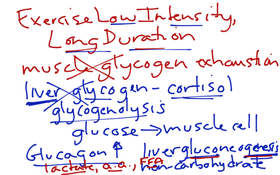 Exercise Low Intensity,
Long Duration
muscle glycogen exhaustion
liver glycogen - cortisol
glycogenolysis
glucose → muscle cell
Glucagon ↑ liver gluconeogenesis
lactate, a.a., FFA non carbohydrate